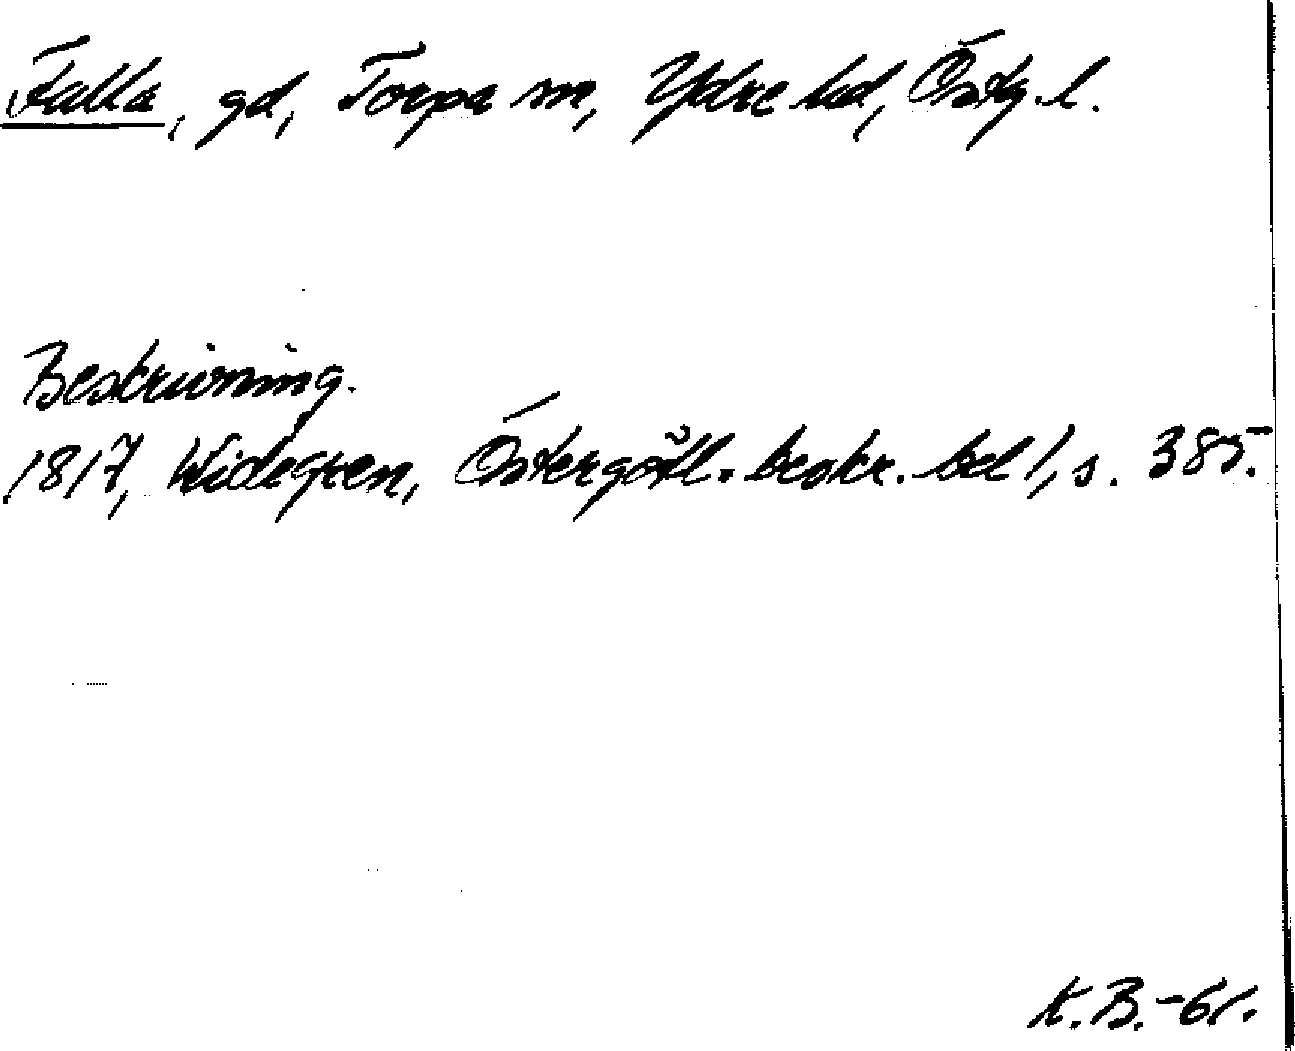 Falla, gd, Torpa sn, Ydre hd, Östg. l.
Beskrivning.
1817, Widegren, Östergötl. beskr. bd 1, s. 385.
K.B.-61.